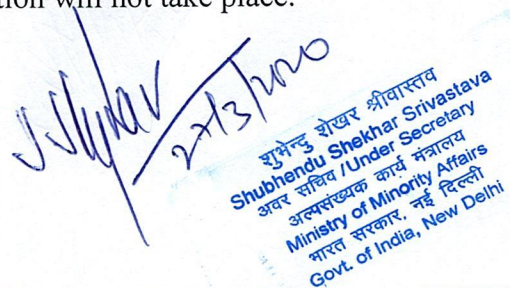 tion will not take place.
27/3/2020
शुभेन्दु शेखर श्रीवास्तव
Shubhendu Shekhar Srivastava
अवर सचिव /Under Secretary
अल्पसंख्यक कार्य मंत्रालय
Ministry of Minority Affairs
भारत सरकार, नई दिल्ली
Govt. of India, New Delhi